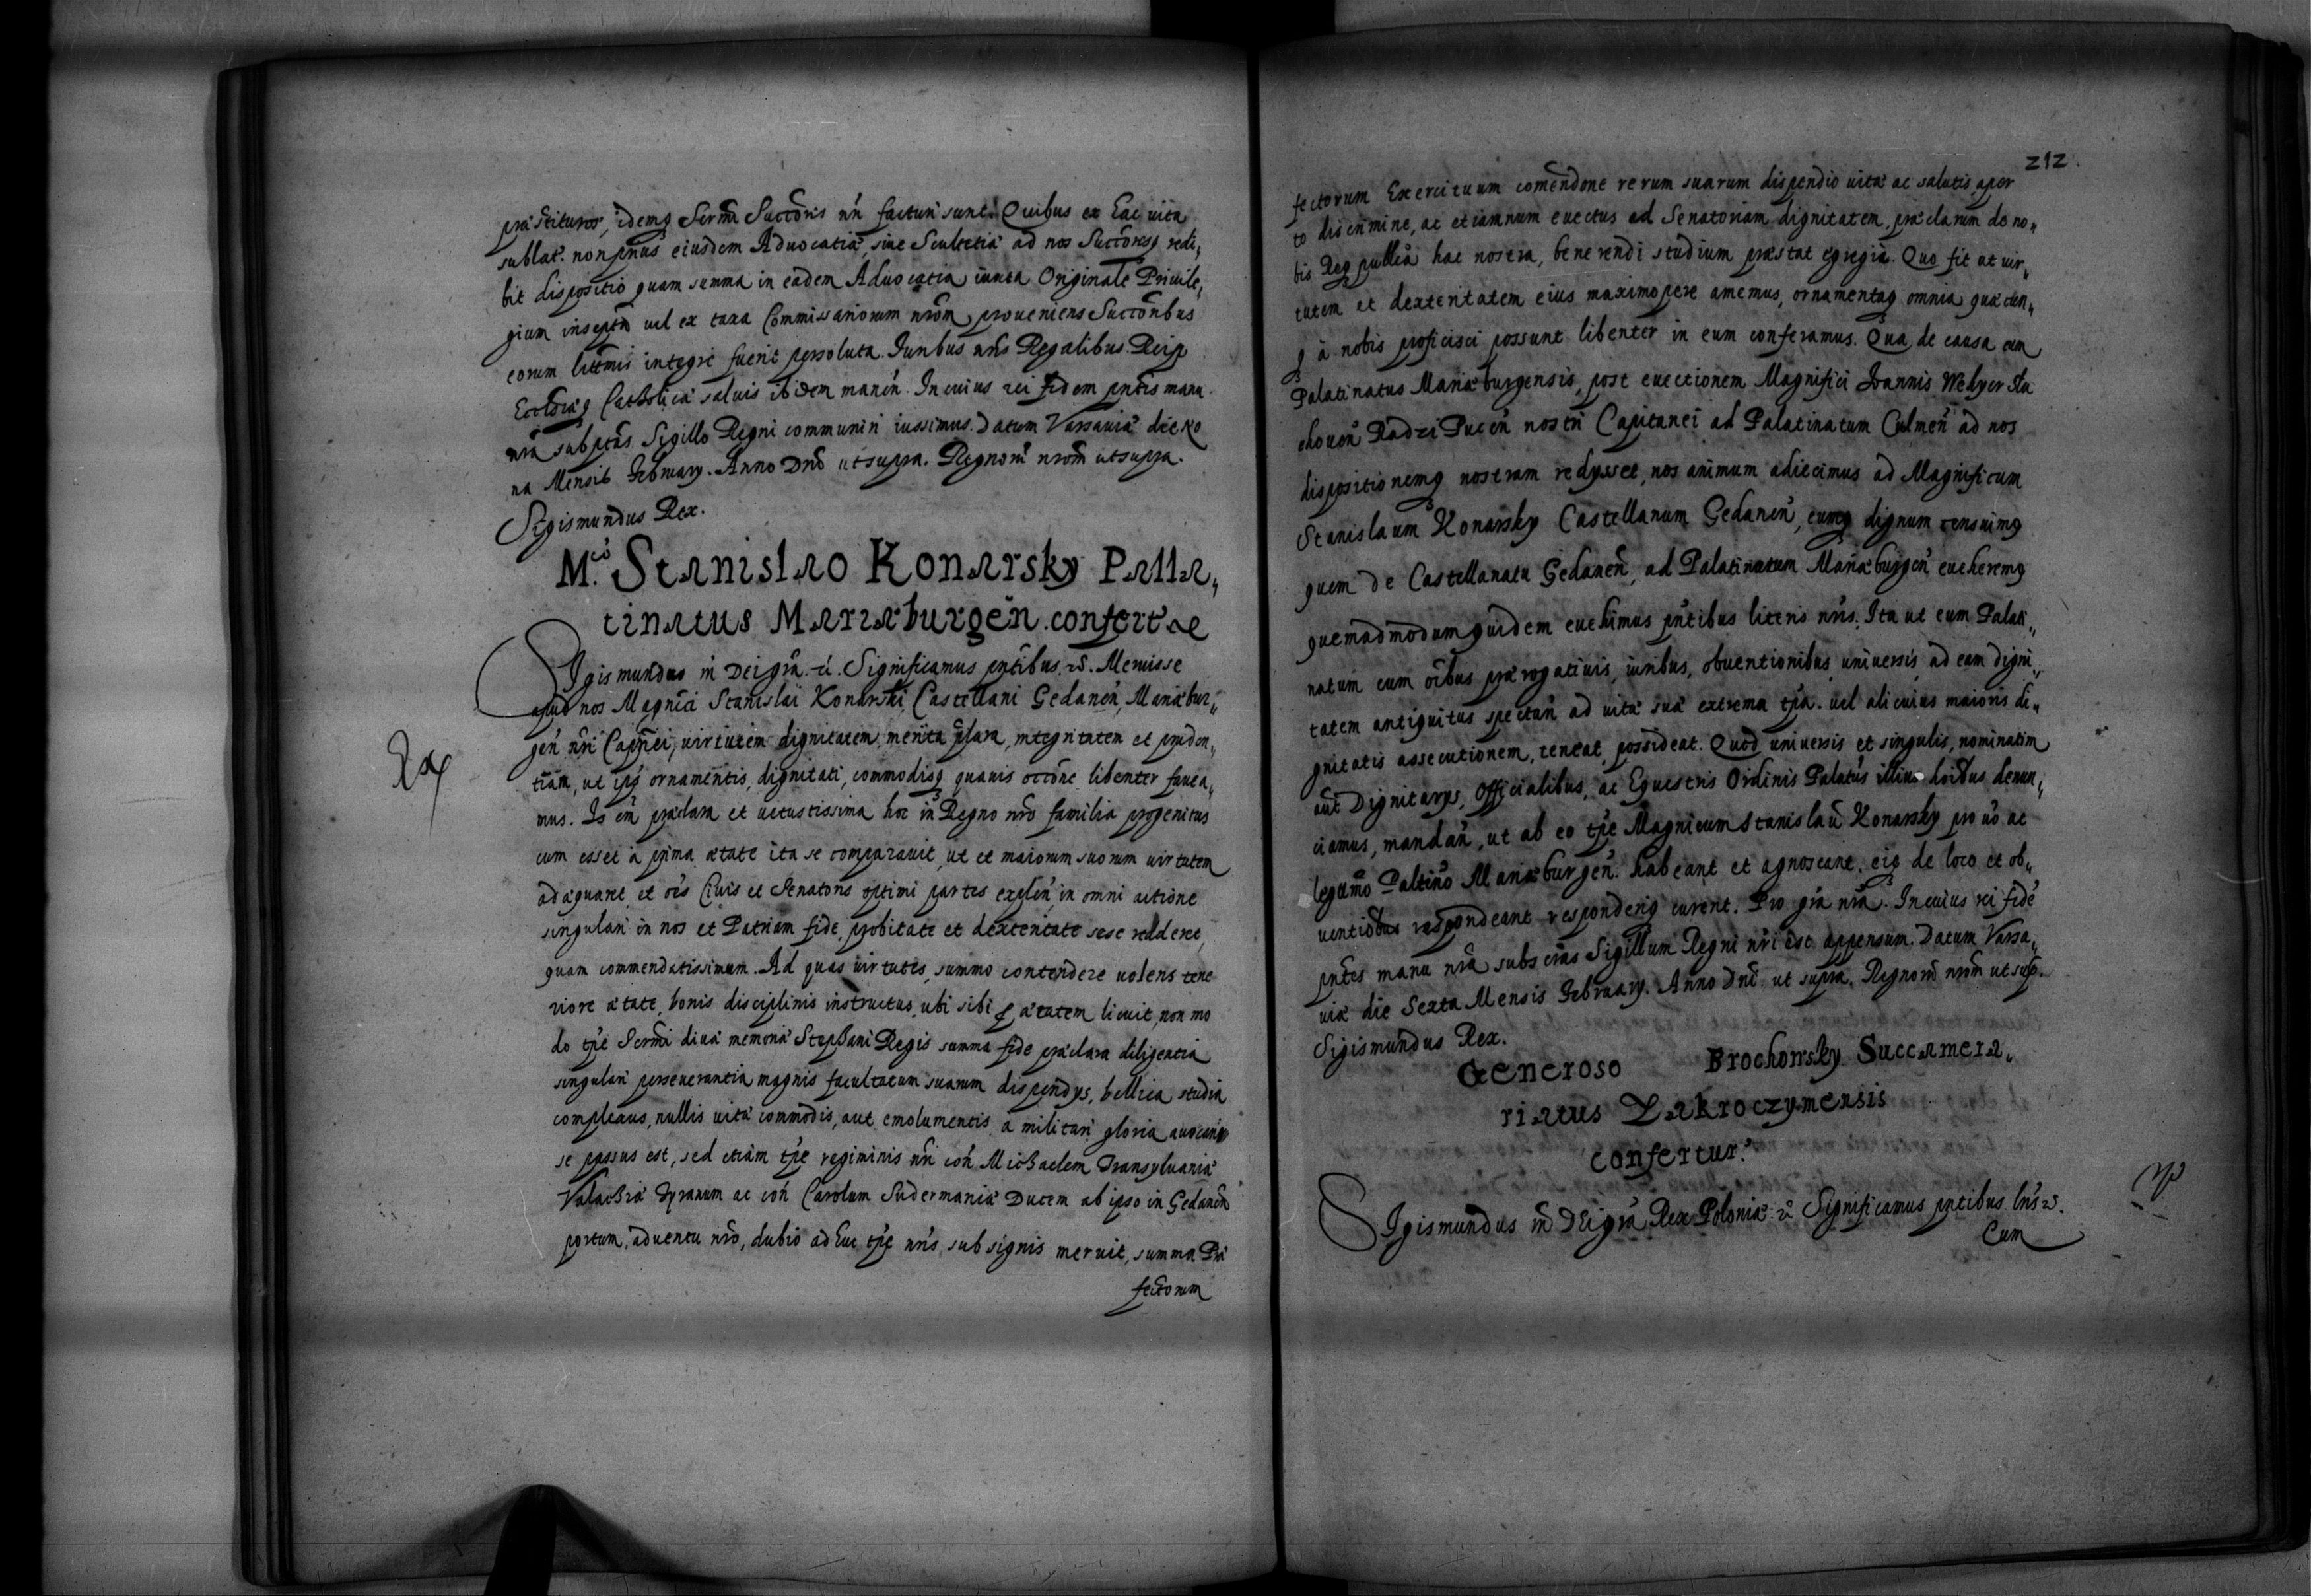 præstituros, idemq Sermi Succoris nri facturi sunt. Quibus ex hac uita
sublat. non prius eiusdem Aduocatiæ, siue Scultetiæ ad nos Succoresq redi„
bit dispositio quam summa in eadem Aduocatia iuxta Originale Priuile„
gium inscripta uel ex taxa Commissariorum nrorm proueniens Succoribus
eorum littmis integre fuerit persoluta. Iuribus nris Regalibus Reip
Ecclesiæq Catholicæ saluis ibidem manen. In cuius rei fidem pntis manu
nra subsptas Sigillo Regni communiri iussimus. Datum Varsauiæ die No
na Mensis February. Anno Dni ut supra. Regnorm nrorm ut supra.
Sigismundus Rex.
M.co Stanislao Konarsky Palla„
tinatus Mariæburgen. confert
Sigismundus III Dei gra. Significamus pntibus. Meruisse
apud nos Magnici Stanislai Konarski, Castellani Gedanen, Mariæbur„
gen nri Capnei, uirtutem dignitatem, merita plara, integritatem et pruden„
tiam, ut ipsius ornamentis, dignitati, commodisq quauis occone libenter fauea„
mus. Is eni præclara et uetustissima hoc in Regno nro familia progenitus
cum esset à prima ætate ita se comparauit, ut et maiorum suorum uirtutem
adæquaret et oes Ciuis et Senatoris optimi partes explen, in omni actione
singulari in nos et Patriam fide, probitate et dexteritate sese redderet,
quam commendatissimum. Ad quas uirtutes, summo contendere uolens tene
riore ætate, bonis disciplinis instructus, ubi sibi p ætatem licuit, non mo
do tpe Sermi diuæ memoriæ Stephani Regis summa fide præclara diligentia
singulari perseuerantia magnis facultatum suarum dispendys, bellica studia
complexus, nullis uitæ commodis, aut emolumentis à militari gloria auocari
se passus est, sed etiam tpe regiminis nri con Michaelem Transyluaniæ
Valachiæ Tyranum ac con Carolum Sudermaniæ Ducem ab ipso in Gedanen
portum, aduentu nro, dubio adhuc tpe nris sub signis meruit, summa Præ
fectorum
212.
fectorum Exercituum comendone rerum suarum dispendio uitæ ac salutis aper
to discrimine, ac etiamnum euectus ad Senatoriam dignitatem, præclarum de no„
bis Req publica hac nostra, bene rendi studium præstat egregia. Quo fit ut uir„
tutem et dexteritatem eius maximopere amemus, ornamentaq omnia quæcun„
q à nobis proficisci possunt libenter in eum conferamus. Qua de causa cum
Palatinatus Mariæburgensis, post euectionem Magnifici Ioannis Weiyer Slu
chouen Radzi Pucen nostri Capitanei ad Palatinatum Culmen ad nos
dispositionemq nostram redysset, nos animum adiecimus ad Magnificum
Stanislaum Konarsky Castellanum Gedanen, eumq dignum censuimq
quem de Castellanatu Gedanen, ad Palatinatum Mariæburgen eueheremq
quemadmodum quidem euehimus pntibus literis nris. Ita ut eum Palati„
natum cum oibus prærogatiuis, iuribus, obuentionibus uniuersis, ad eam digni„
tatem antiquitus spectan ad uitæ suæ extrema tpa. uel alicuius maioris di„
gnitatis assecutionem, teneat, possideat. Quod uniuersis et singulis, nominatim
aut Dignitarys, Officialibus, ac Equestris Ordinis Palatus illius hoibus denun„
ciamus, mandan, ut ab eo tpe Magnicum Stanislau Konarsky pro uo ac
legitimo Paltino Mariæburgen. habeant et agnoscant, eiq de loco et ob„
uentiobus respondeant responderiq curent. Pro gra nra. In cuius rei fide
pntes manu nra subscras Sigillum Regni nri est appensum. Datum Varsa„
uiæ die Sexta Mensis February. Anno Dni ut supra. Regnorm nrorm ut sup.
Sigismundus Rex.
Generoso Brochowsky Succamera„
riatus Zakroczymensis
confertur.
Sigismundus III DEi gra Rex Poloniæ Significamus pntibus lris.
Cum